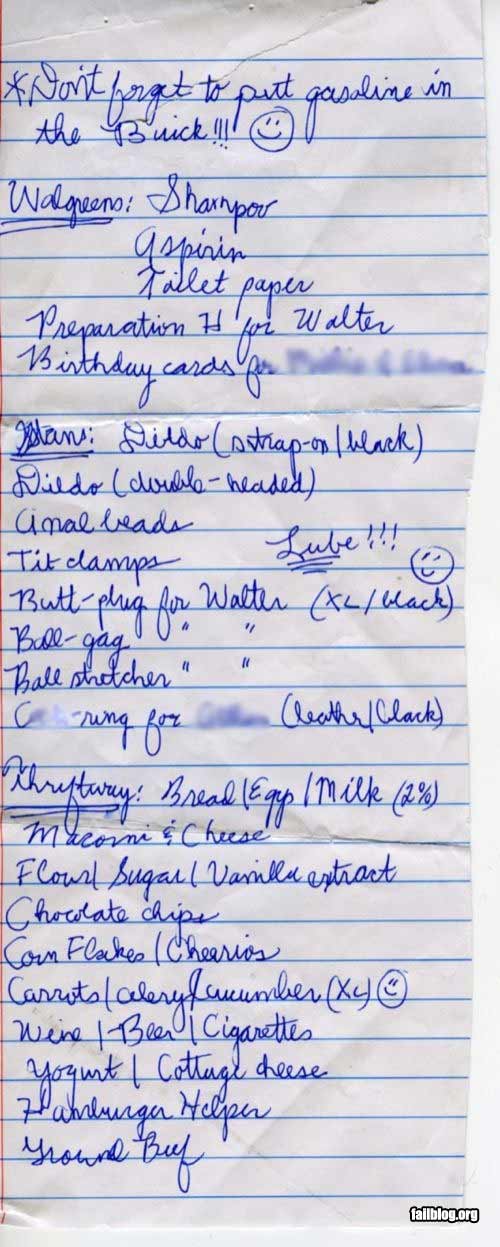 *Don't forget to putt gasoline in
the Buick!!!
Walgreens: Shampoo
Aspirin
Toilet paper
Preparation H for Walter
Birthday cards
Stans: Dildo (strap-on/black)
Dildo (double-headed)
Anal beads
Lube!!!
Tit clamps
Butt-plug for Walter (XL/black)
Ball-gag " "
Ball stretcher " "
-ring for (leather/black)
Thryftway: Bread/Eggs/Milk (2%)
Macorni & Cheese
Flour/Sugar/Vanilla extract
Chocolate chips
Corn Flakes/Cheerios
Carrots/celery/cucumber (XL)
Wine/Beer/Cigarettes
Yogurt/Cottage cheese
Hamburger Helper
Ground Beef
failblog.org